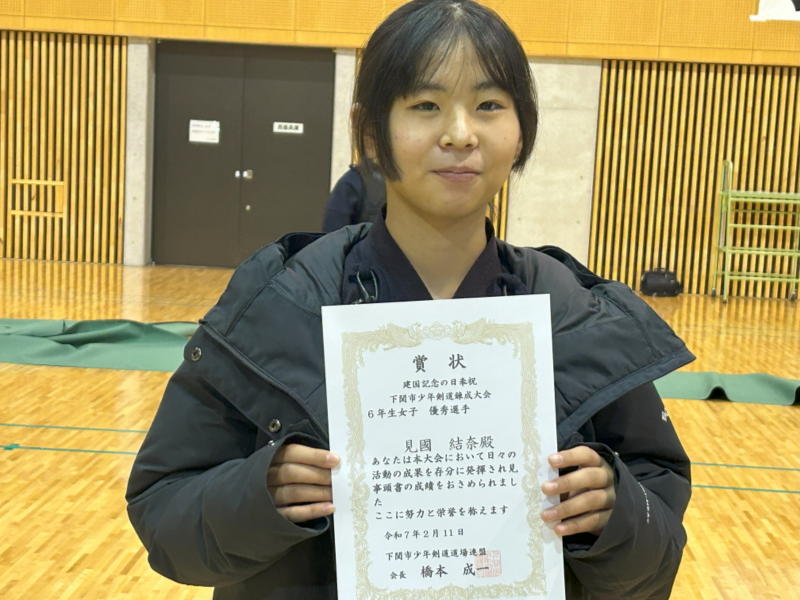 賞状
建国記念の日奉祝
下関市少年剣道錬成大会
6年生女子 優秀選手
見國 結奈殿
あなたは本大会において日々の
活動の成果を存分に発揮され見
事頭書の成績をおさめられまし
た
ここに努力と栄誉を称えます
令和7年2月11日
下関市少年剣道道場連盟
会長 橋本 成一